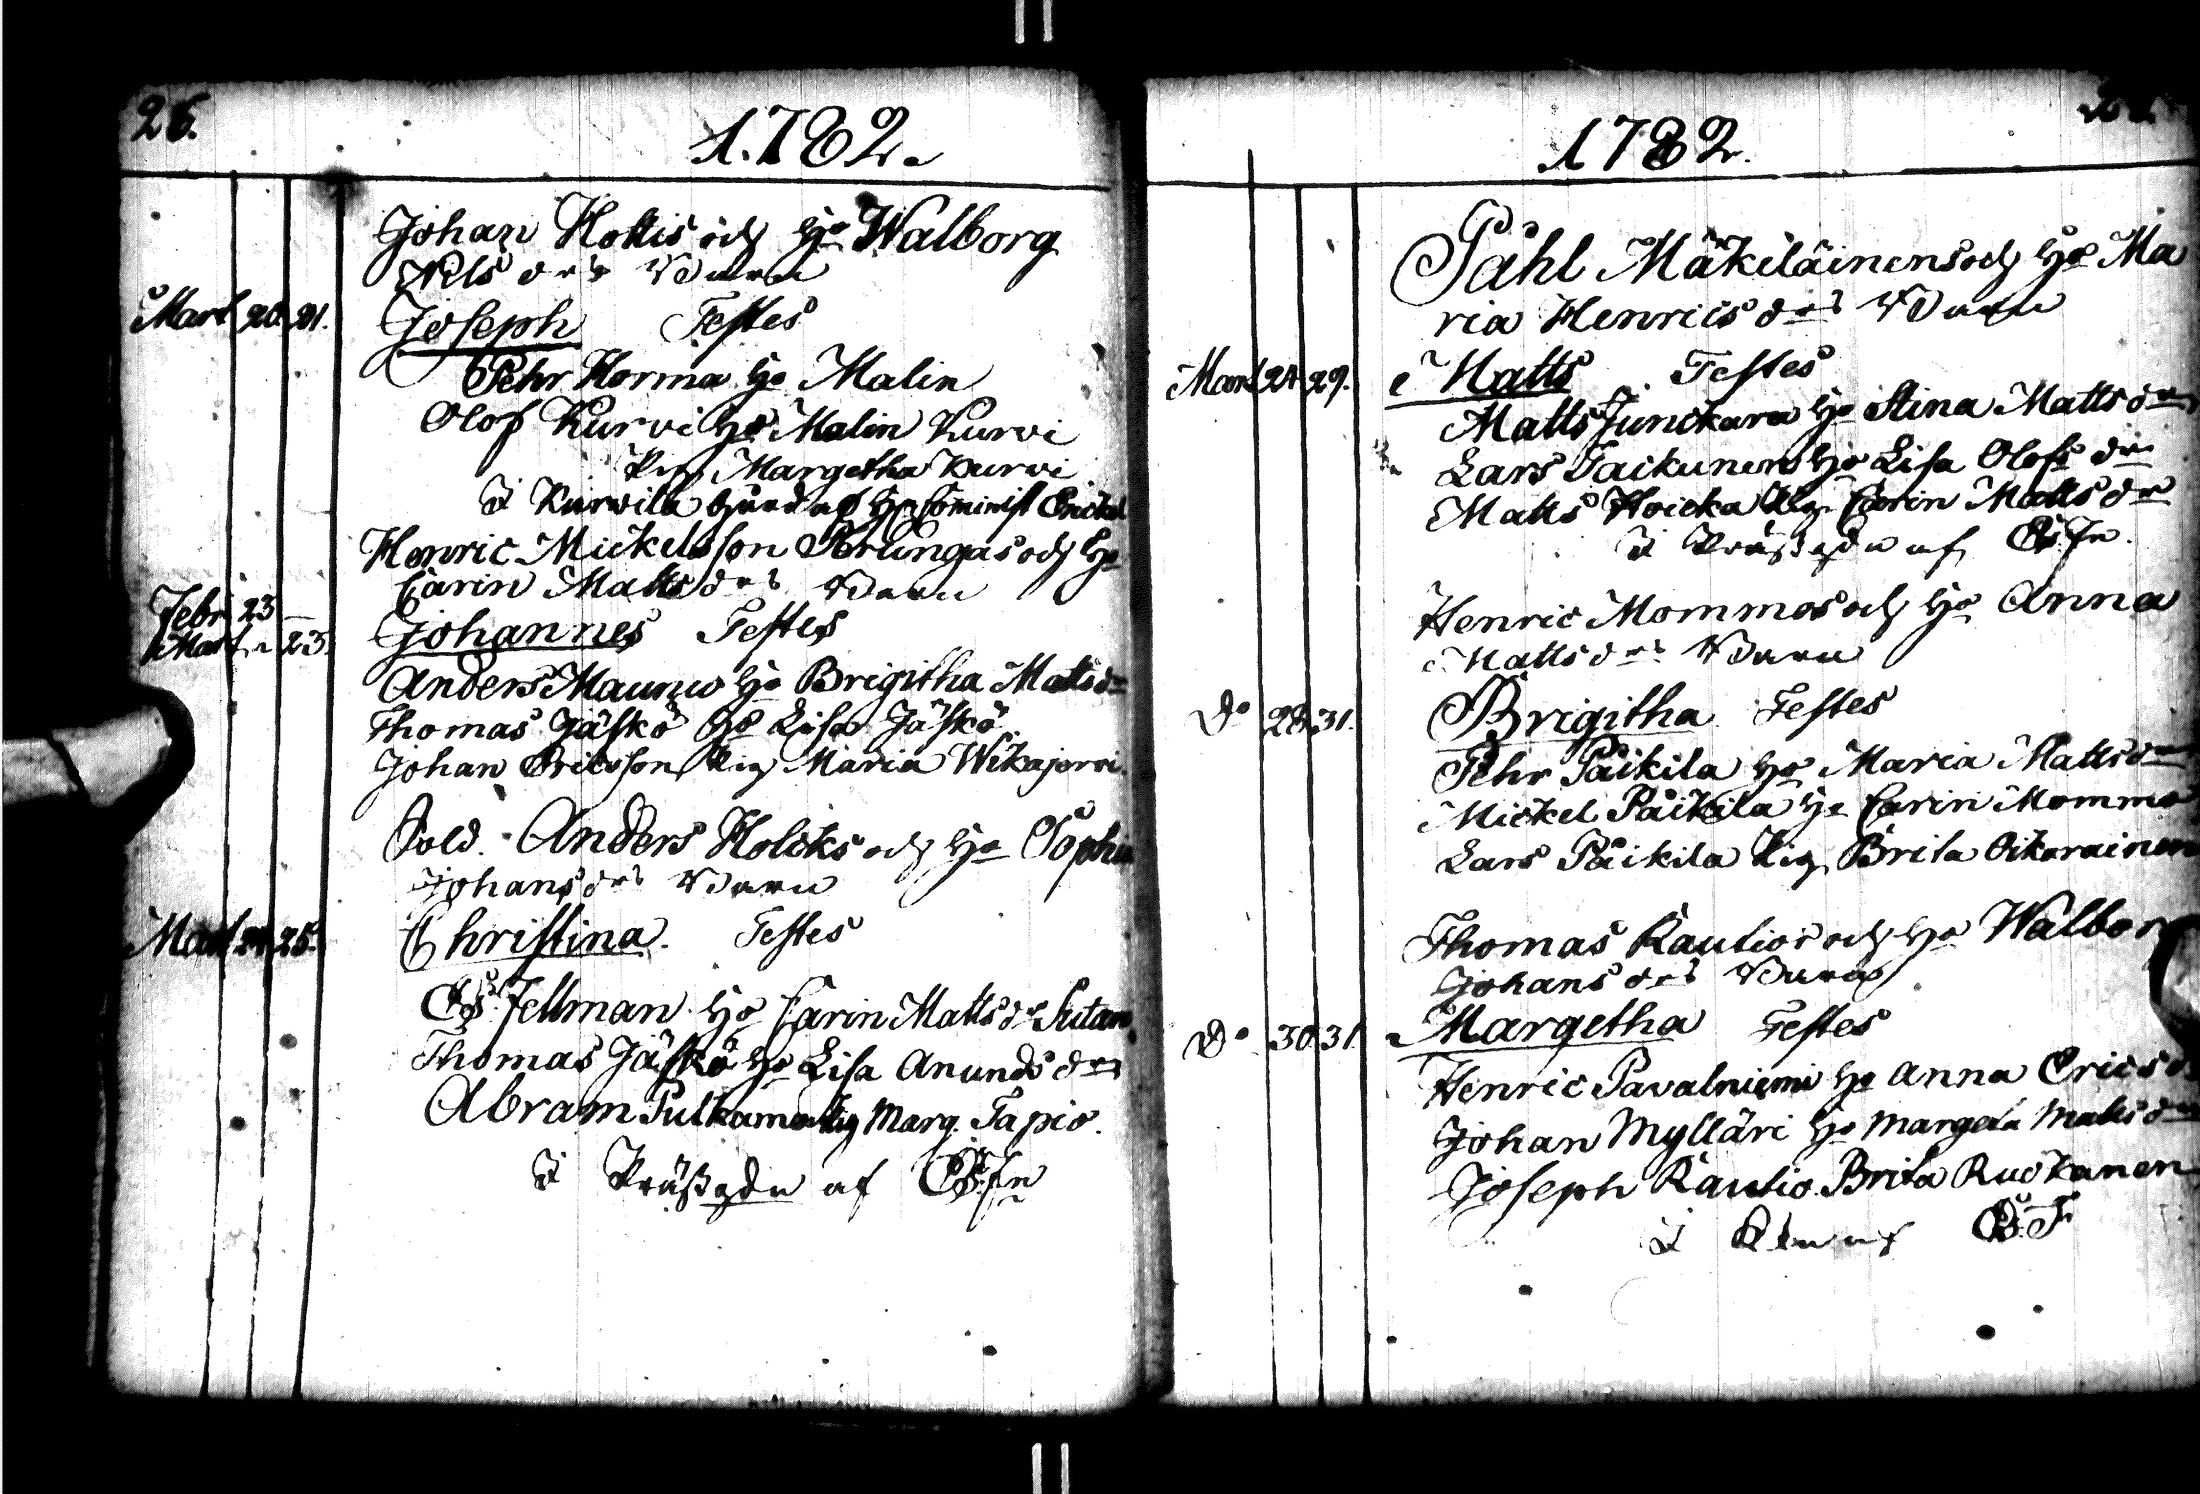 26.
1.782.
Johan Hottis och H:o Walborg
Nils drs Barn
Mart 20. 21. Joseph Testes
Pehr Horma H:o Malin
Olof Kurvi H:o Malin Kurvi
Pig. Margetha Kurvi
I Kurvila
Henric Mickelsson och H:o
Carin Matts drs Barn
Febr. 23 —
Mart. 23. Johannes Testes
Anders Maunu H:o Brigitha Matts dr
Thomas Jäskö H:o Lisa Jäskö
Johan Ericsson Pig. Maria Wikajervi.
Sold. Anders Holcks och H:o Sophia
Johans drs Barn
Mart 24 25. Christina. Testes
Fellman H:o Carin Matts dr
Thomas Jäskö H:o Lisa Anunds dr
Abram Pulkamo Pig Marg. Tapio.
I af
1782.
Påhl Mäkeläinens och H:o Ma
ria Henrics drs Barn
Mart 24 29. Matts Testes
Matts Junckara H:o Stina Matts dr
Lars H:o Lisa Olofs dr
Matts Hoicka Pig. Carin Matts dr
I af
Henric Mommos och H:o Anna
Matts drs Barn
D:o 28. 31. Brigitha Testes
Pehr Päikilä H:o Maria Matts dr
Mickel Päikilä H:o Carin Mommo
Lars Päikilä Pig. Brita Oikarainen
Thomas Rautios och H:o Walbor
Johans drs Barn
D:o 30 31 Margetha Testes
Henric Pavalniemi H:o Anna Erics d
Johan Mylläri H:o Margeta Matts dr
Joseph Rautio Brita Ruokanen